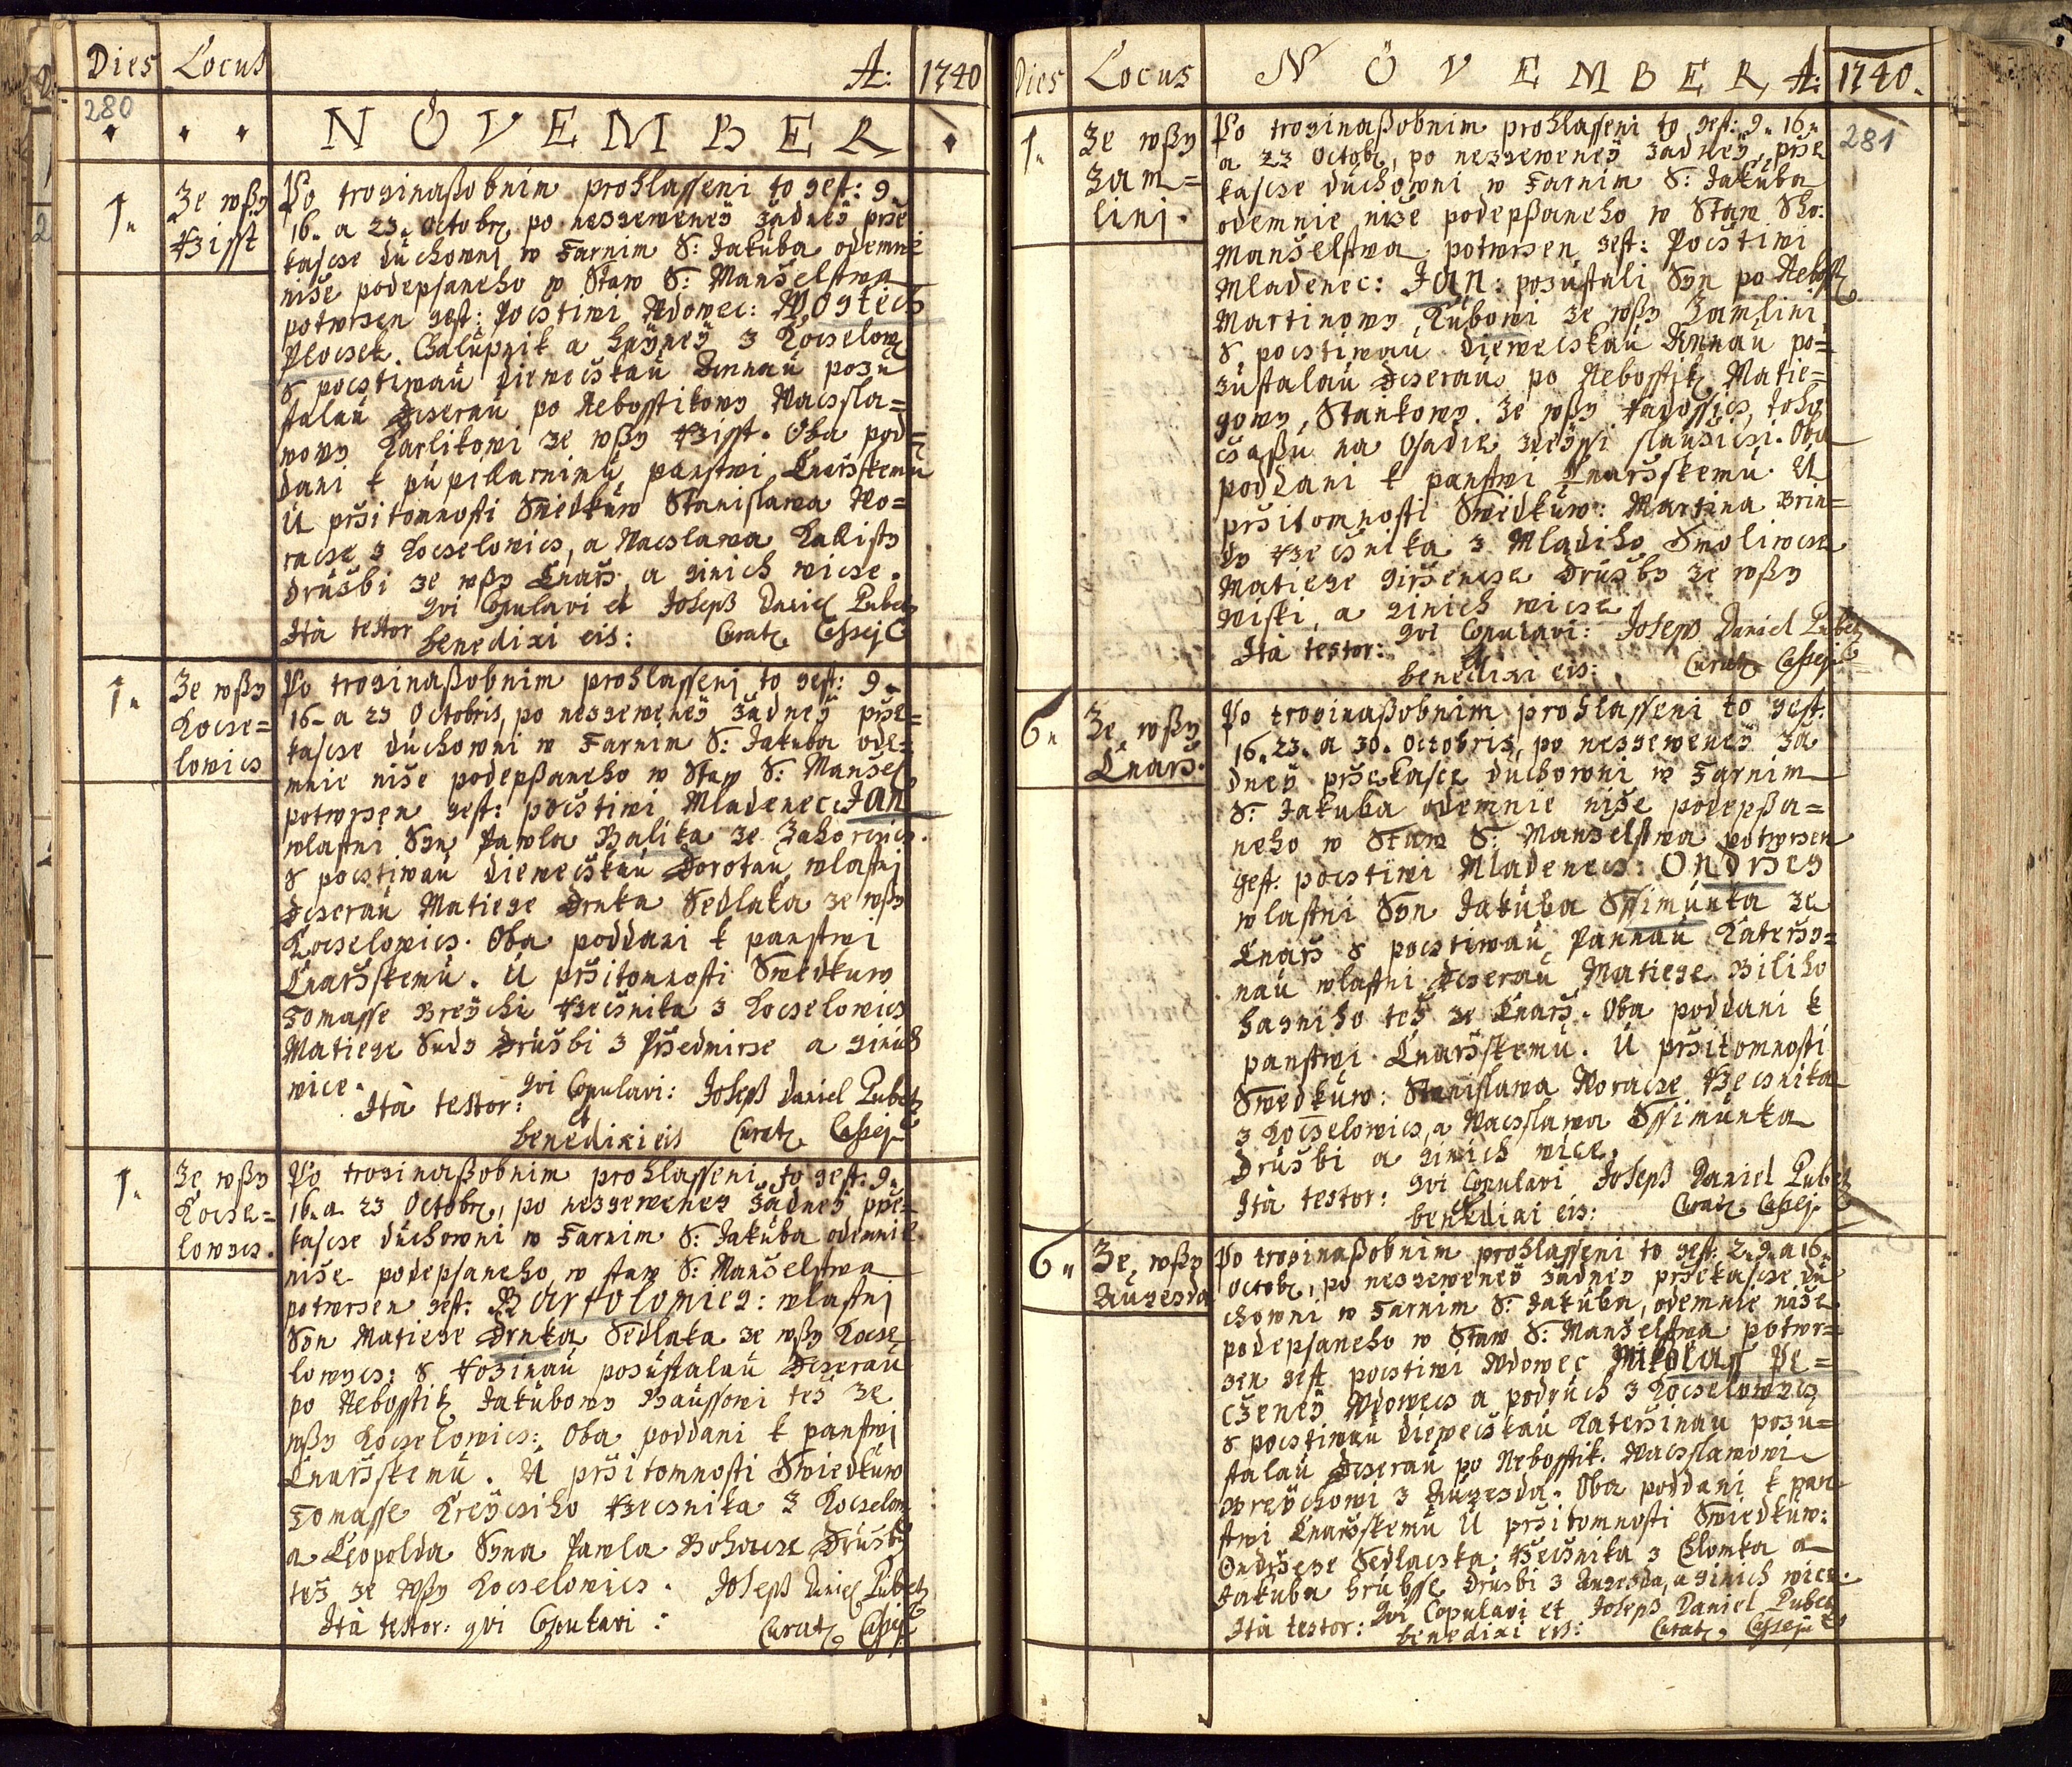 Dies Locus A: 1740
280
NOVEMBER
1. Ze wßy Hzisst
Po troginaßobnim prohlasseni to gest: 9.
16. a 23. Octobr, po nezgeweneÿ žadneÿ prže
kascse duchowni w Farnim S: Jakuba odemne
niže podepsaneho w Staw S: Manželstwa
potwrzen gest: Pocstiwi Wdowec: Wogtech
Plocsek. Chalupnik a haÿneÿ z Kocselow
s pocstiwaú diewecskaú Annaú pozu
stalaú Dcseraú po Nebosstikowy Wacsla=
wowy Karlikowi ze wßy Hzisst. Oba pod=
dani k pupillarnimu panstwi Lnaržskemu
U pržitomnosti Swedkuw Stanislawa Wo=
racse z Kocselowics, a Wacslawa Kalisty
družbi ze wßy Lnarž a ginich wicse.
Ità testor qvi Copulavi et benedixi eis: Joseph Daniel Pubetz Curatg Cassej
1. Ze wßy Kocse=lowics
Po troginaßobnim prohlasseni to gest: 9.
16. a 23 Octobris, po nezgeweneÿ žadneÿ prže=
kascse duchowni w Farnim S: Jakuba ode=
mnie niže podepßaneho w Staw S: Manžel
potwrzen gest: pocstiwi Mladenec: Jan
wlastni Syn Pawla Balika ze Zahorcsics.
s pocstiwaú diewecskaú Dorotaú wlastni
Dcseraú Matiege Drnka Sedlaka ze wßy
Kocselowics. Oba poddani k panstwi
Lnaržskemu. U pržitomnosti Swedkuw
Tomasse Breÿchi Hzecsnika z Kocselowics
Matiege Sudy Družbi z Pržedmirze a ginich
wice.
Ità testor: qvi Copulavi: et benedixi eis Joseph Daniel Pubetz Curatg Cassej
1. Ze wßy Kocse=lowycs.
Po troginaßobnim prohlasseni to gest: 9.
16. a 23 Octobr, po nezgeweneÿ žadneÿ prže=
kascse duchowni w Farnim S: Jakuba odemnie
niže podepsaneho w staw S: Manželstwa
potwrzen gest: Bartolomieg: wlastni
Syn Matiege Drnka Sedlaka ze wßy Kocse
lowycs: s Rozinaú pozustalaú Dcseraú
po Nebosstik Jakubowy Baussowi též ze
wßy Kocselowics: Oba poddani k panstwi
Lnaržskemu. U pržitomnosti Swiedkuw
Tomasse Kreÿcsiho Hzecsnika z Kocselow
a Leopolda Syna Pawla Bohacse Družby
též ze Wßy Kocselowics. Joseph Daniel Pubetz
Ità testor: qvi Copulavi: Curatg Cassej
Dies Locus NOVEMBER, A: 1740.
281
1. Ze wßy Zam=lini.
Po troginaßobnim prohlasseni to gest: 9. 16.
a 23 Octobr, po nezgeweneÿ žadneÿ prže
kascse duchowni w Farnim S: Jakuba
odemnie niže podepßaneho w Staw Sho:
Manželstwa potwrzen gest: Pocstiwi
Mladenec: Jan: pozustali Syn po Nebosst
Martinowy Kubowi ze wßy Zamlini,
s pocstiwaú diewecskaú Annaú po=
zustalaú Dcseraú po Nebosstik Matie=
gowy Stankowy. Ze wßy Hadossics, toho
cžaßu na Osadie zdeÿssi slaužicsi. Oba
poddani k panstwi Lnaržskemu. U
pržitomnosti Swiedkuw: Martina Brin=
dy Hzecsnika z Mladiho Smoliwcse
Matiege giržencse Družby ze wßy
wiski, a ginich wicse
Ità testor: qvi Copulavi: et benedixi eis: Joseph Daniel Pubetz Curatg Cassej
6. Ze wßy Lnarž.
Po troginaßobnim prohlasseni to gest.
16. 23. a 30. Octobris, po nezgeweneÿ ža
dneÿ pržekascse duchowni w Farnim
S: Jakuba odemnie niže podepßa=
neho w Staw S: Manželstwa potwrzen
gest. pocstiwi Mladenecs: Ondrzeg
wlastni Syn Jakuba Ssimunka ze
Lnarž s pocstiwaú Pannaú Kateržy=
naú wlastni Dcseraú Matiege Biliho
hagniho též ze Lnarž. Oba poddani k
panstwi Lnaržskemu. U pržitomnosti
Swedkuw: Stanislawa Woracse Hzecsnika
z Kocselowics, a Wacslawa Ssimunka
Družbi a ginich wice.
Ità testor: qvi Copulavi et benedixi eis: Joseph Daniel Pubetz Curatg Cassej
6. Ze wßy Augezda
Po troginaßobnim prohlasseni to gest: 2. 9. a 16.
Octobr, po nezgeweneÿ žadney pržekascse du
chowni w Farnim S: Jakuba, odemnie niže
podepsaneho w Staw S: Manželstwa potwr=
zen gest pocstiwi Wdowec Mikolass Pe=
cženÿ Wdowecs a podruch z Kocselowycs
s pocstiwaú diewecskaú Kateržinaú pozu=
stalaú Dcseraú po Nebosstik. Wacslawowi
Breÿchowi z Augezda. Oba poddani k pan
stwi Lnaržskemu U pržitomnosti Swiedkuw:
Ondržege Sedlacska: Hžecsnika z Chlomka a
Jakuba Hrubsse Družbi z Augezda, a ginich wice.
Ità testor: qvi Copulavi et benedixi eis: Joseph Daniel Pubetz Curatg Cassej